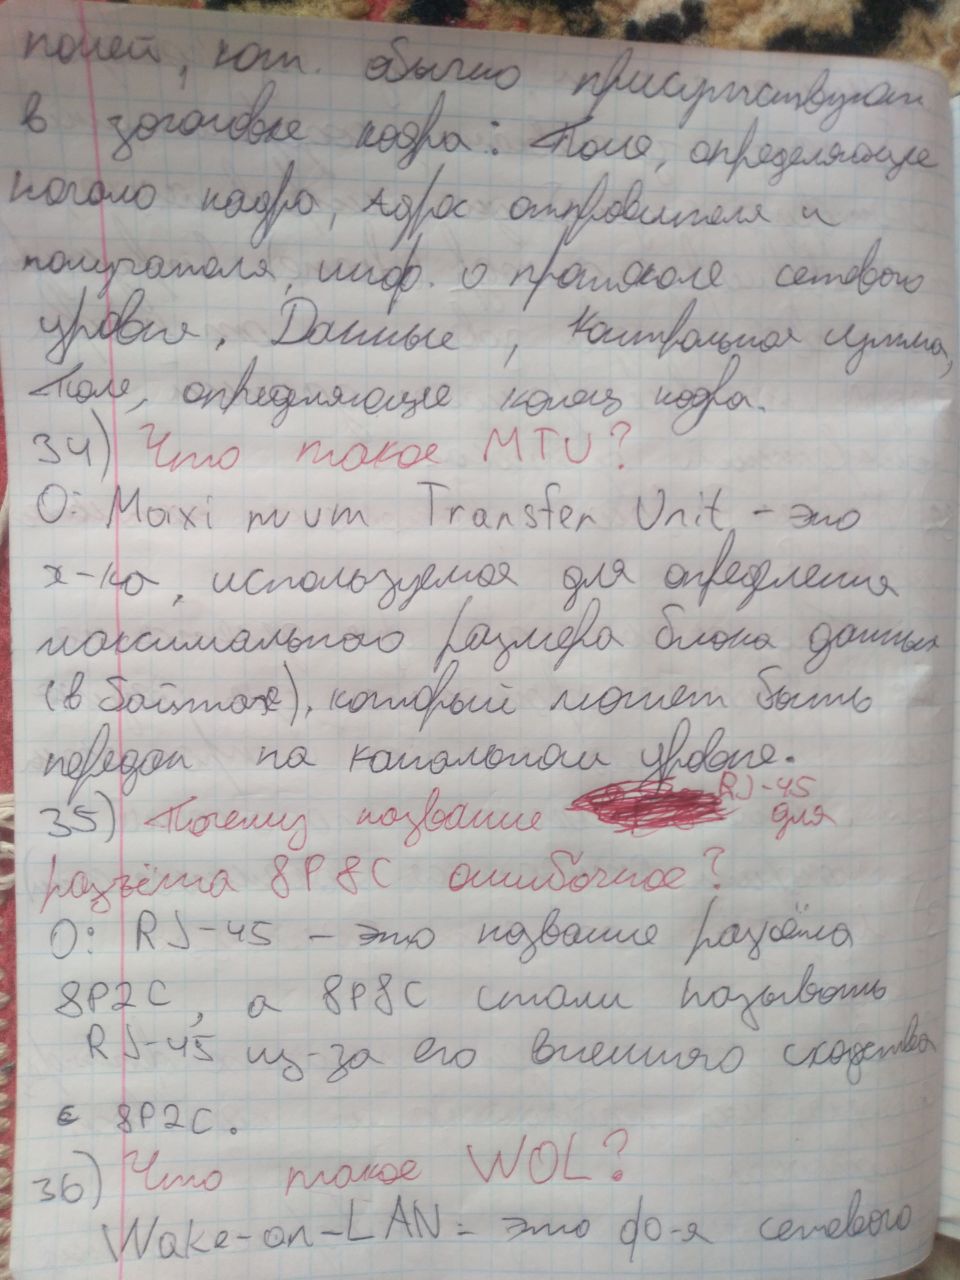 полей, кот. обычно присутствуют
в заголовке кадра: Поля, определяющие
начало кадра, Адрес отправителя и
получателя, инф. о протоколе сетевого
уровня, Данные, Контрольная сумма,
Поле, определяющее конец кадра.
34) Что такое MTU?
О: Maximum Transfer Unit - это
х-ка, используемая для определения
максимального размера блока данных
(в байтах), который может быть
передан на канальном уровне.
35) Почему название RJ-45 для
разъёма 8P8C ошибочное?
О: RJ-45 - это название разъёма
8P2C, а 8P8C стали называть
RJ-45 из-за его внешнего сходства
с 8P2C.
36) Что такое WOL?
Wake-on-LAN - это ф-я сетевого